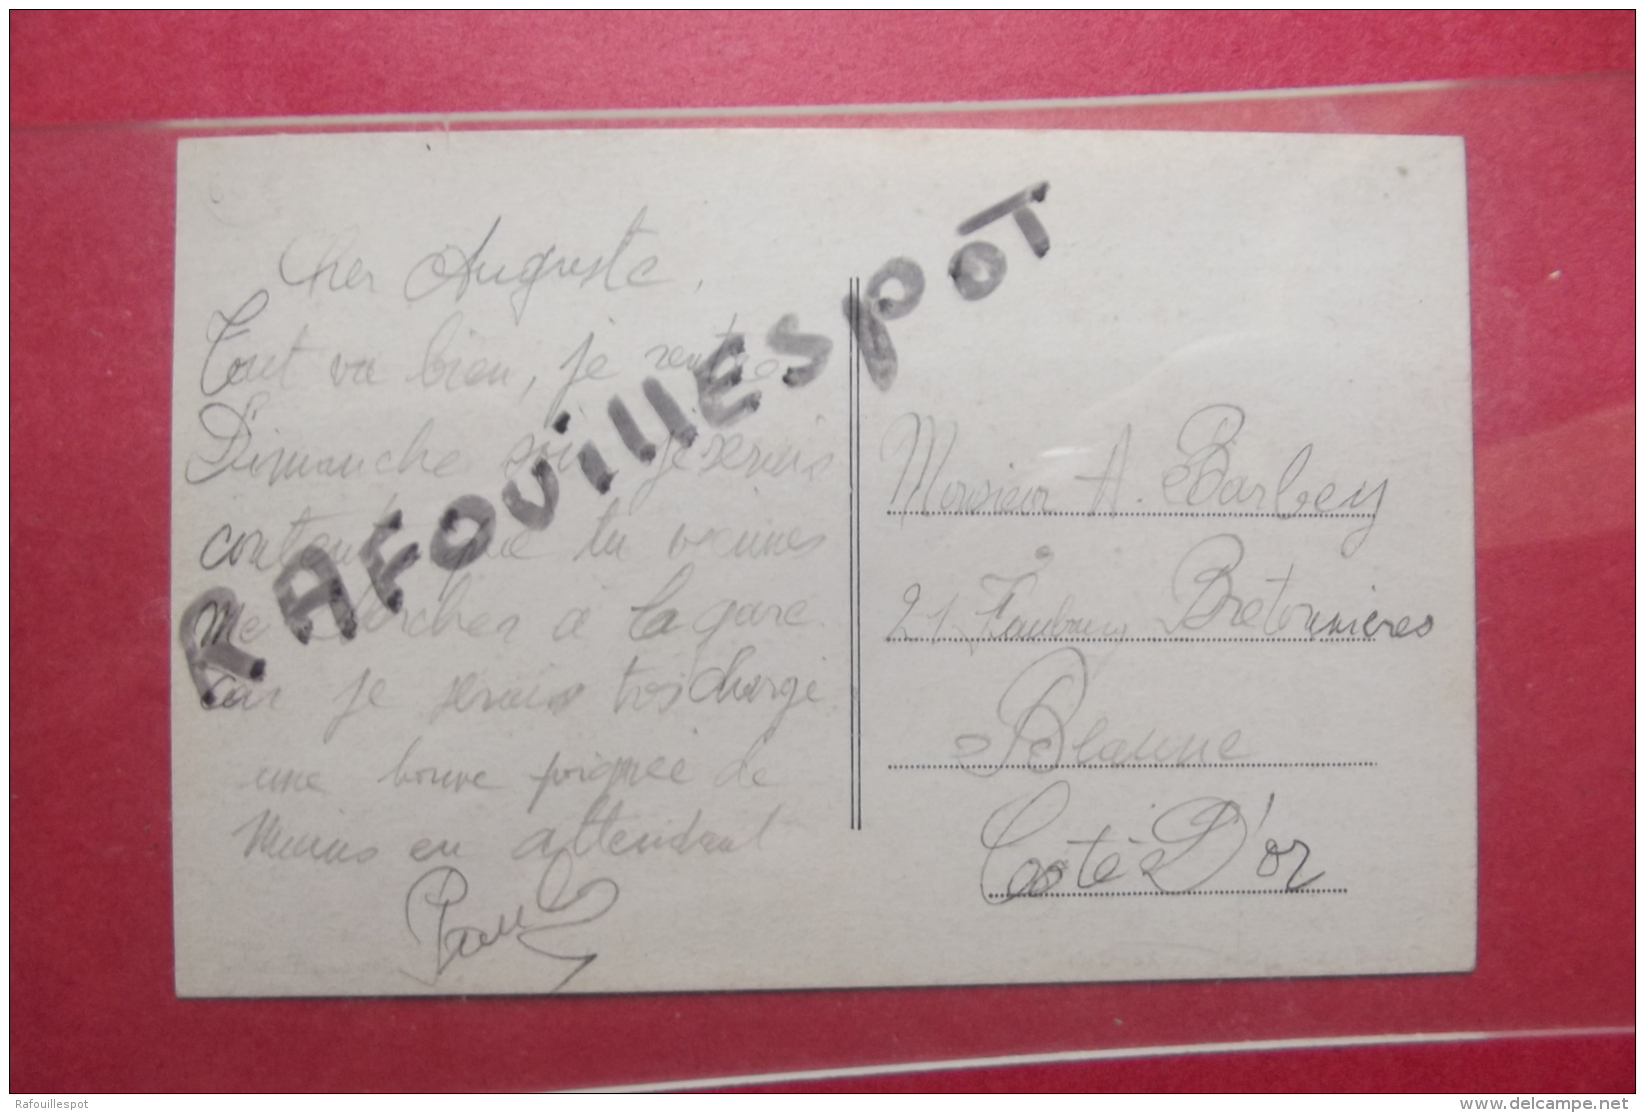 Cher Auguste,
Tout va bien, je rentre
Dimanche soir je serais
content que tu viennes
me chercher à la gare
car je serais tros chargé
une bonne poignée de
mains en attendant
Paul
RAFOUILLESPOT
Monsieur A. Barbey
21 Faubourg Bretonnières
Beaune
Côte D'or
Rafouillespot
delcampe.net